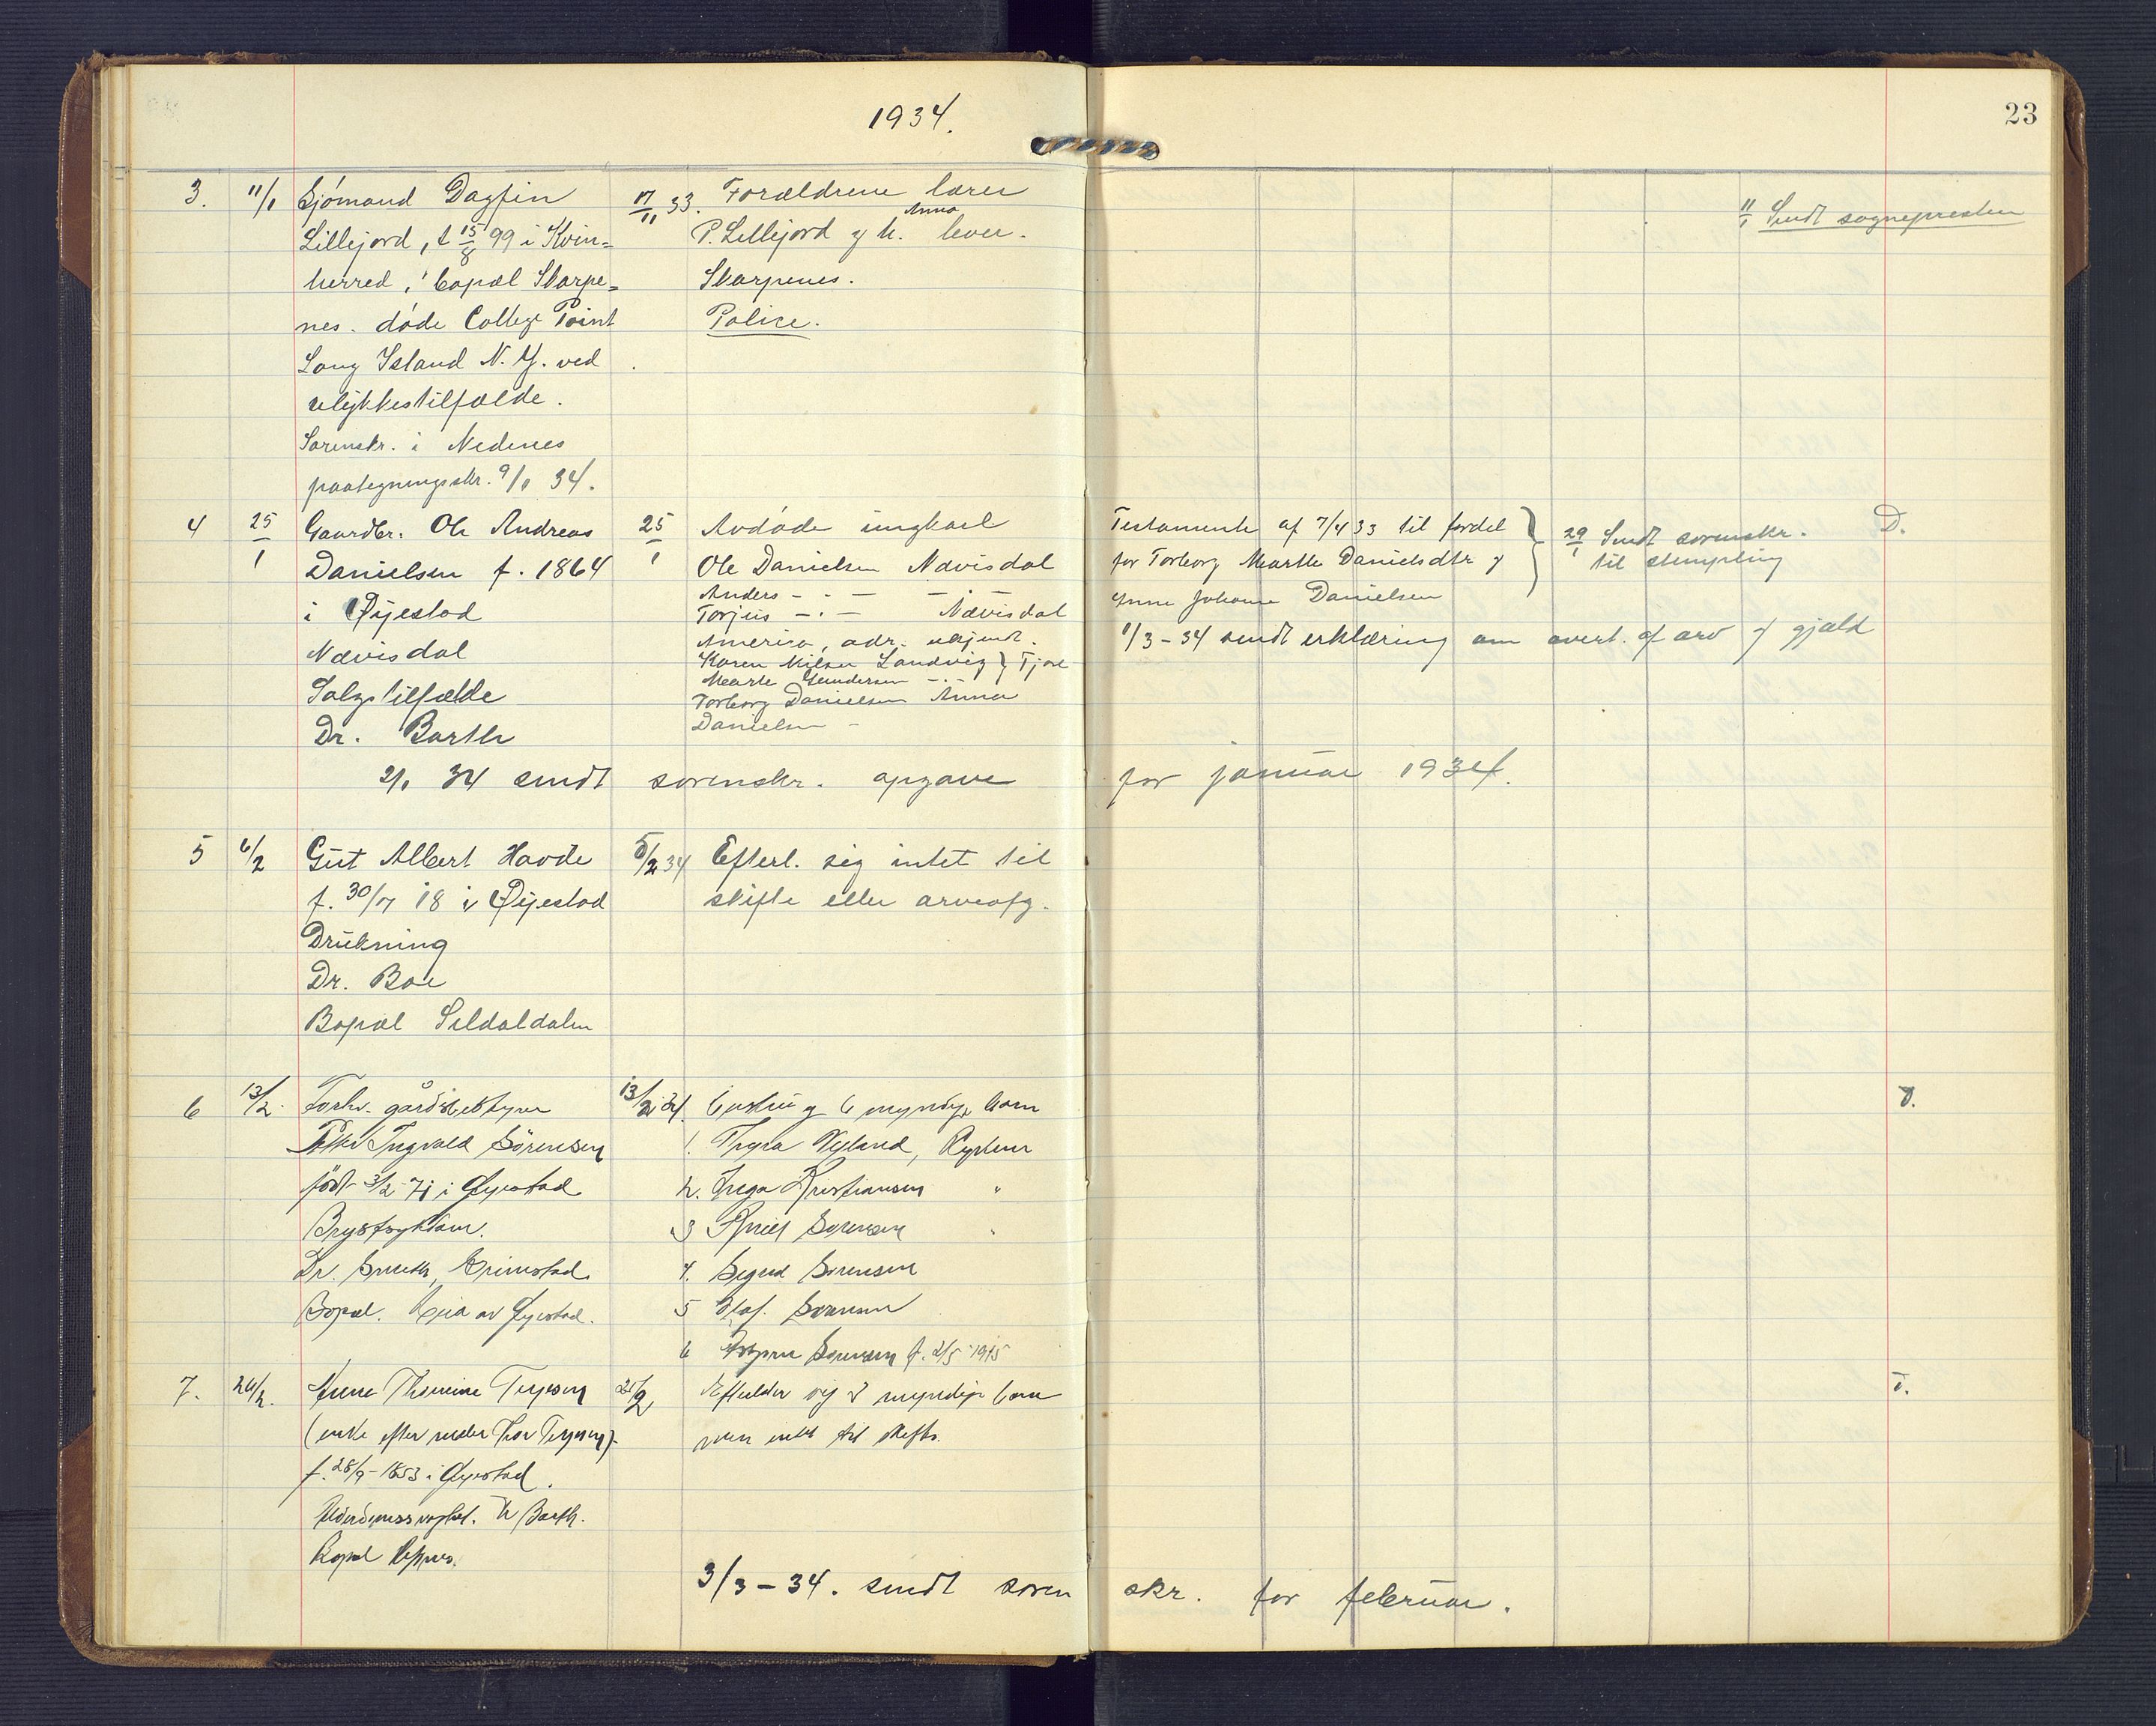 1934.
23
3. 11/1 Sjømand Dagfin 17/11 33. Forældrene lærer
Lillejord, f 15/8 99 i Kvin= P. Lillejord og h. Anna lever.
herred, bopæl Skarpe= Skarpenes.
nes. døde College Point Police.
Long Island N. Y. ved
ulykkestilfælde.
Sorenskr. i Nedenes
paategningsskr. 9/1 34.
11/1 Sendt sognepresten
4 25/1 Gaardbr. Ole Andreas 25/1 Avdøde ungkarl
Danielsen f. 1864 Ole Danielsen Nævisdal
i Øijestad Anders - - - - -
Torjus - - - Nævisdal
Nævisdal Amerika, adr. ukjendt.
Karen Nilsen Landvig } Fjære
Salgstilfælde Marte Gundersen -
Torborg Danielsen Anna
Dr. Barth Danielsen -
Testamente af 7/4 33 til fordel
for Torborg Marthe Danielsdtr og
Anne Johanne Danielsen
29/1 Sendt sorenskr.
til stempling
D.
1/3-34 sendt erklæring om overt. af arv og gjæld
2/1 34 sendt sorenskr. opgave for januar 1934.
5 6/2 Gut Albert Havde 5/2 34 Efterl. sig intet til
f. 30/7 18 i Øijestad skifte eller arveafg.
Drukning
Dr. Boe
Bopæl Sildaldalen
6 13/2. Forhv. gårdsbestyrer 13/2 34. Enke og 6 myndige barn
Ingvald Sörensen 1. Thyra Nyland, Rykene
født 3/2 71 i Øyestad 2. Inga Kristiansen "
Brystsykdom. 3 Sørensen "
Dr. Smith, Grimstad 4. Sigrid Sørensen
Bopæl. av Øyestad. 5 Olaf Sørensen
6 Sørensen f. 2/5 1915
D.
7. 26/2. Anne Thomine Terjesen Efterlader sig 7 myndige barn
(enke efter reder Terjesen) men intet til skifte.
f. 28/9-1853 i Øyestad.
Alderdomssvaghet. Dr Barth.
Bopæl
D.
3/3-34. sendt soren skr. for februar.